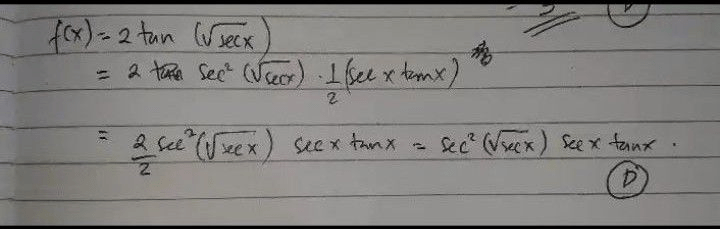 f(x) = 2 tan (√sec x)
= 2 sec² (√sec x) · 1/2 (sec x tan x)
= 2/2 sec² (√sec x) sec x tan x = sec² (√sec x) sec x tan x .
D